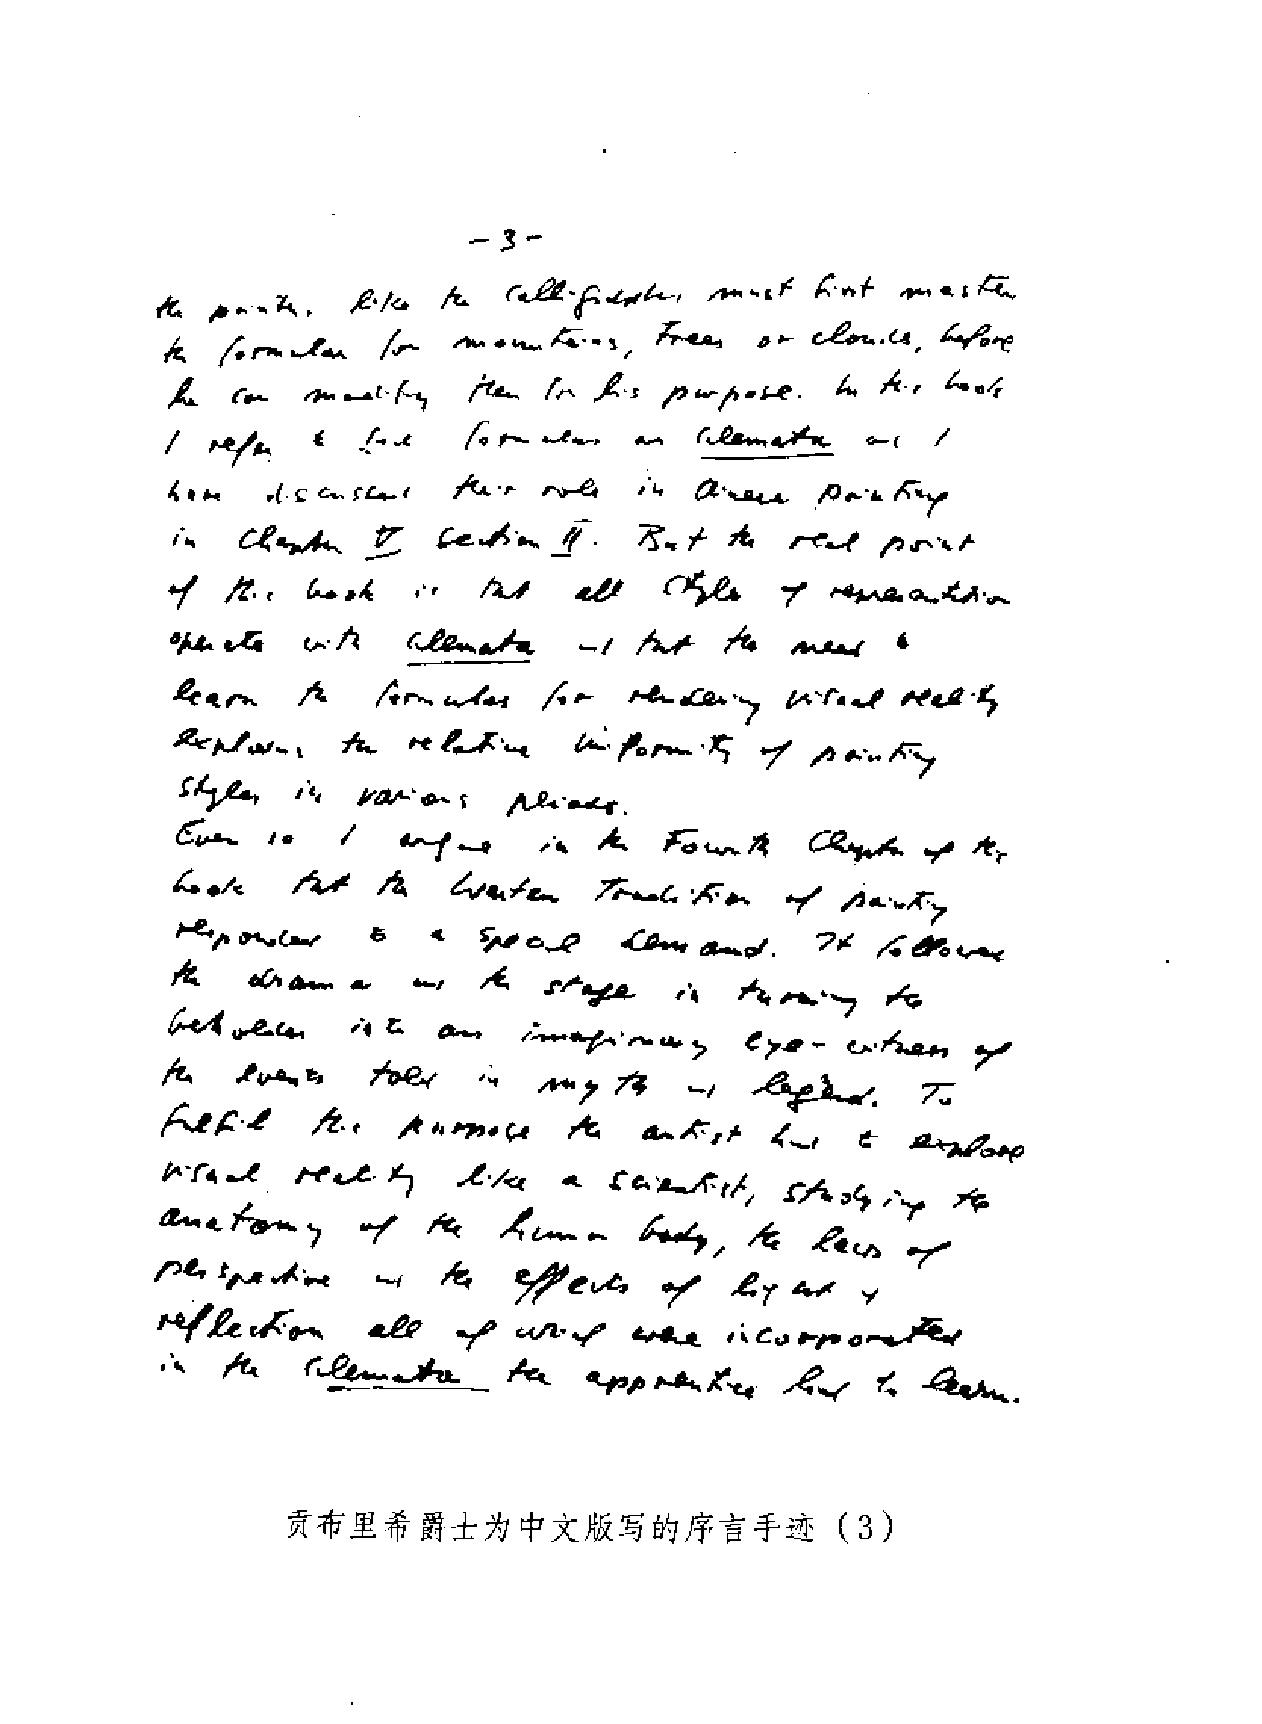 - 3 -
the painter, like the calligrapher, must first master
the formulas for mountains, trees or clouds, before
he can modify them for his purpose. In this book
I refer to such formulas as schemata and I
have discussed their role in Chinese painting
in Chapter V Section II. But the real point
of this book is that all styles of representation
operate with schemata and that the need to
learn the formulas for rendering visual reality
explains the relative uniformity of painting
styles in various periods.
Even so I argue in the Fourth Chapter of this
book that the Western Tradition of painting
responded to a special demand. It followed
the drama and the stage in turning the
beholder into an imaginary eye-witness of
the events told in myth and legend. To
fulfil this purpose the artist had to explore
visual reality like a scientist, studying the
anatomy of the human body, the laws of
perspective and the effects of light &
reflection all of which were incorporated
in the schemata the apprentice had to learn.
贡布里希爵士为中文版写的序言手迹（3）